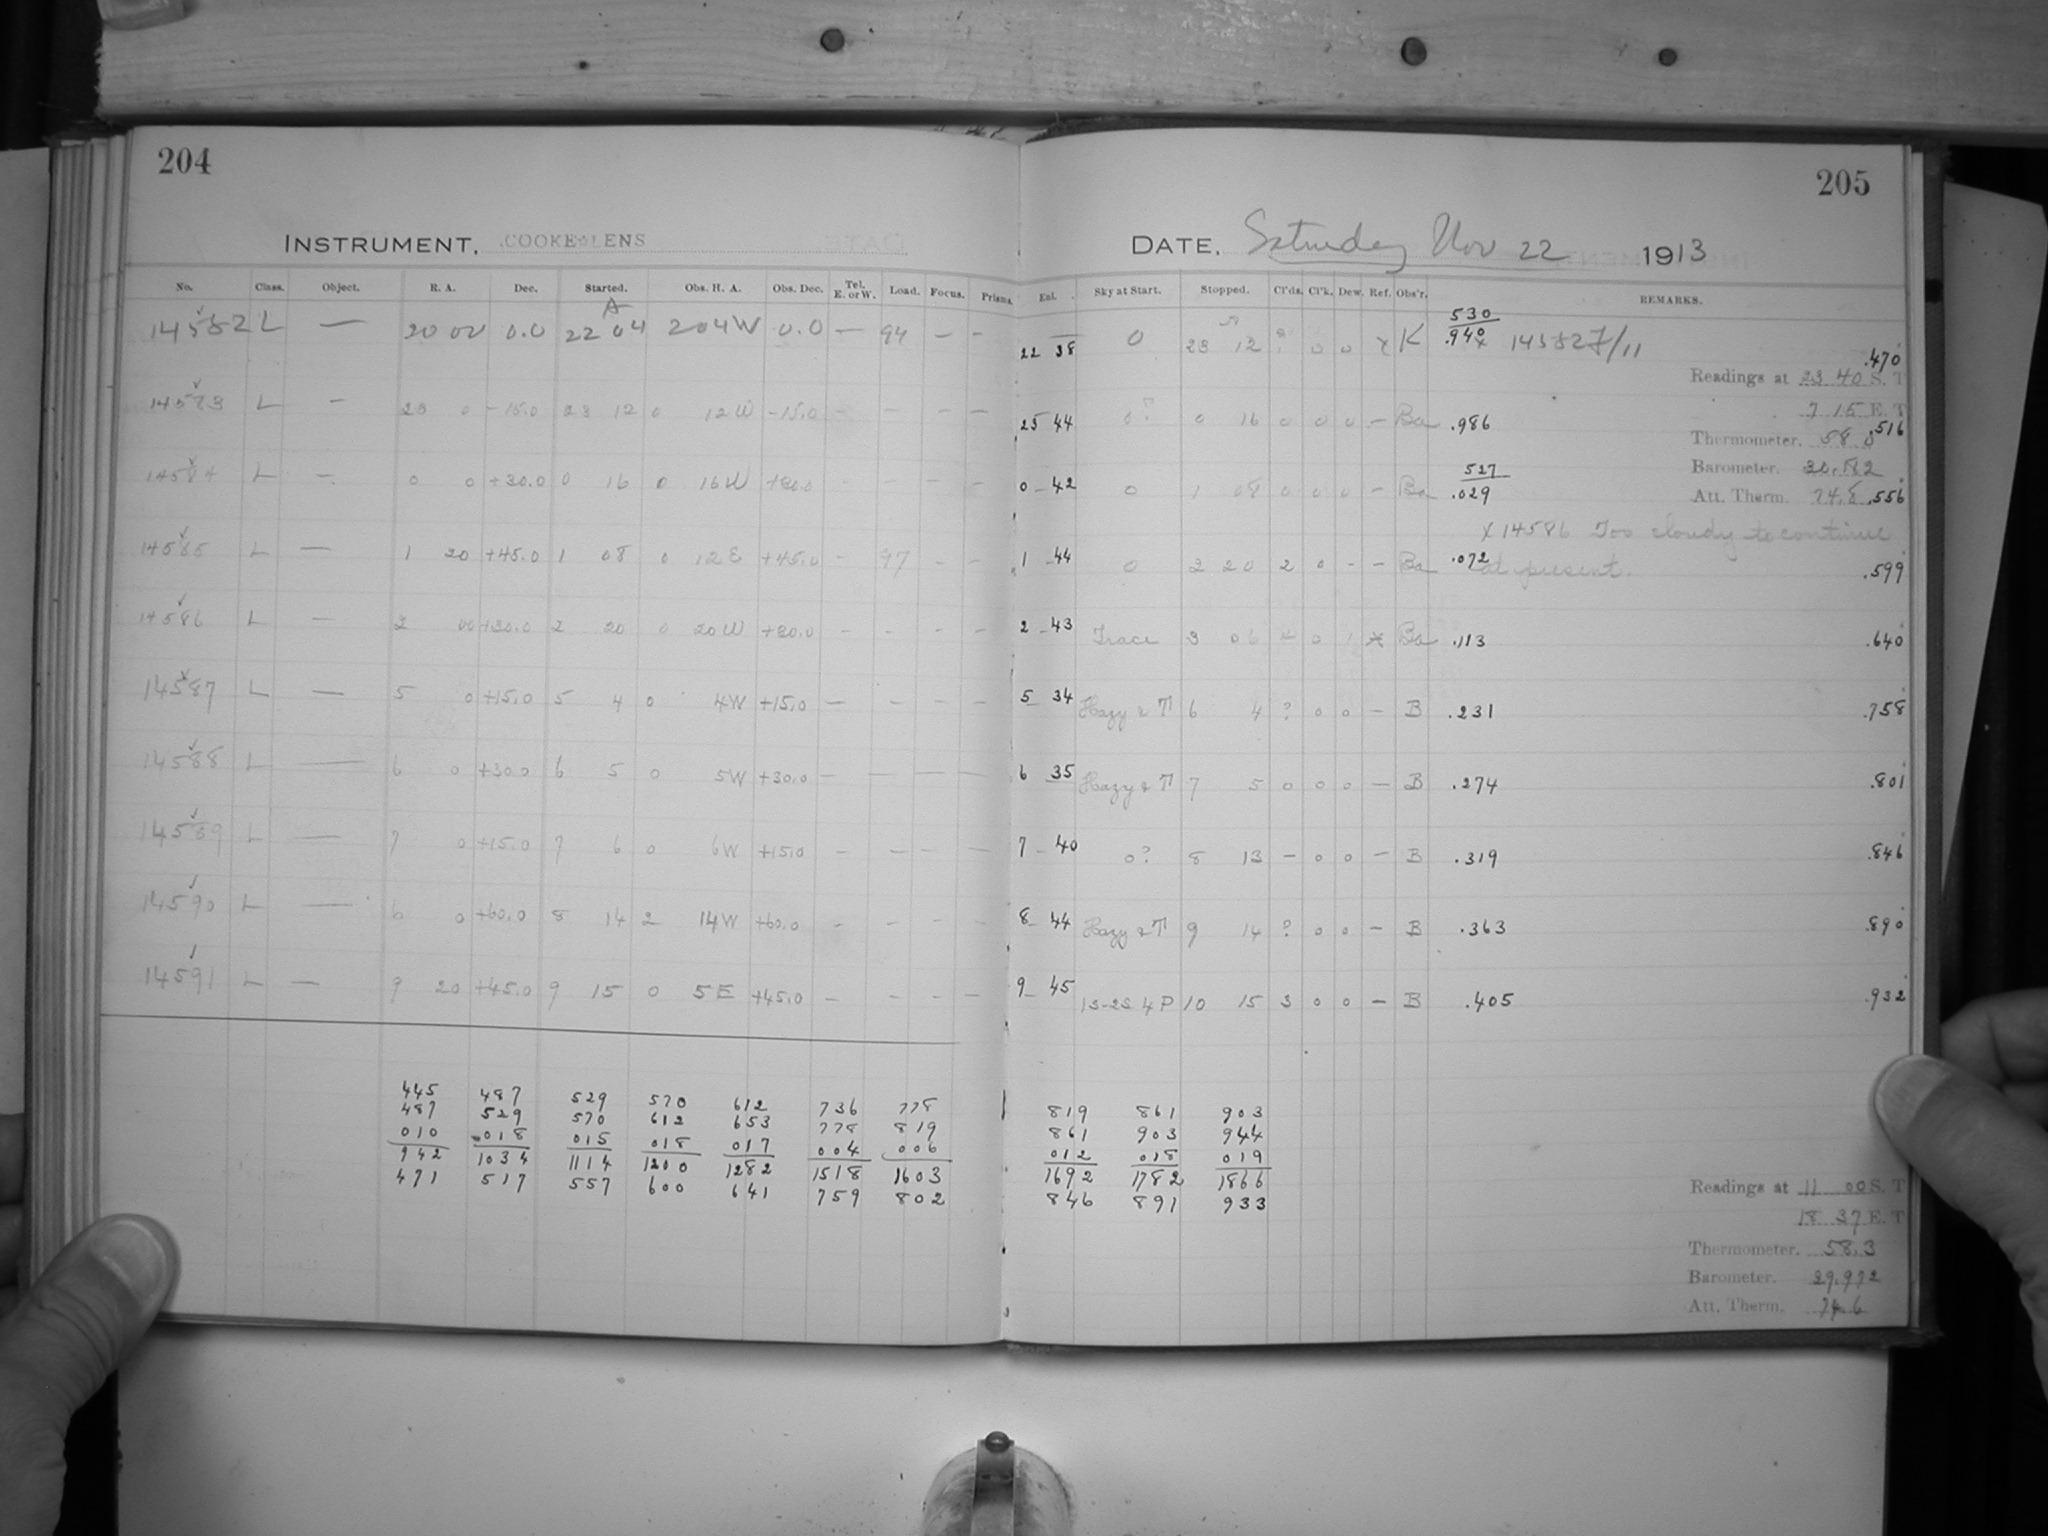 204
205
INSTRUMENT. COOKE LENS
DATE. Saturday Nov 22 1913
No. Class. Object. R. A. Dec. Started. Obs. H. A. Obs. Dec. Tel. E. or W. Load. Focus. Prisms. Ext. Sky at Start. Stopped. Cl'ds. Cl'k. Dew. Ref. Obs'r. REMARKS.
14582 L — 20 00 0.0 22 04 2 04 W 0.0 — 94 — — 22 38 0 23 12 ? 0 0 x K 530 .940 x 14582 F/11 .470
Readings at 23 40 S. T
7 15 E. T
14583 L — 23 0 -15.0 23 12 0 12 W -15.0 — — — — 23 44 0? 0 16 0 0 0 — Ba .986 .516
Thermometer. 58.0
Barometer. 30.182
14584 L — 0 0 +30.0 0 16 0 16 W +30.0 — — — — 0 42 0 1 08 0 0 0 — Ba 527 .029 .556
Att. Therm. 74.8
x 14586 Too cloudy to continue
at present.
14585 L — 1 20 +45.0 1 08 0 12 E +45.0 — 97 — — 1 44 0 2 20 2 0 - - Ba .072 .599
14586 L — 2 00 +30.0 2 20 0 20 W +30.0 — — — — 2 43 Trace 3 06 4 0 1 * Ba .113 .640
14587 L — 5 0 +15.0 5 4 0 4 W +15.0 — — — — 5 34 Hazy & T 6 4 ? 0 0 — B .231 .758
14588 L — 6 0 +30.0 6 5 0 5 W +30.0 — — — — 6 35 Hazy & T 7 5 0 0 0 — B .274 .801
14589 L — 7 0 +15.0 7 6 0 6 W +15.0 — — — — 7 40 0? 8 13 — 0 0 — B .319 .846
14590 L — 6 0 +60.0 8 14 2 14 W +60.0 — — — — 8 44 Hazy & T 9 14 ? 0 0 — B .363 .890
14591 L — 9 20 +45.0 9 15 0 5 E +45.0 — — — — 9 45 1S-2S 4 P 10 15 3 0 0 — B .405 .932
445 487 529 570 612 736 778 819 861 903
487 529 570 612 653 778 819 861 903 944
010 018 015 018 017 004 006 012 018 019
942 1034 1114 1200 1282 1518 1603 1692 1782 1866
471 517 557 600 641 759 802 846 891 933
Readings at 11 00 S. T
18 37 E. T
Thermometer. 58.3
Barometer. 29.972
Att. Therm. 74.6